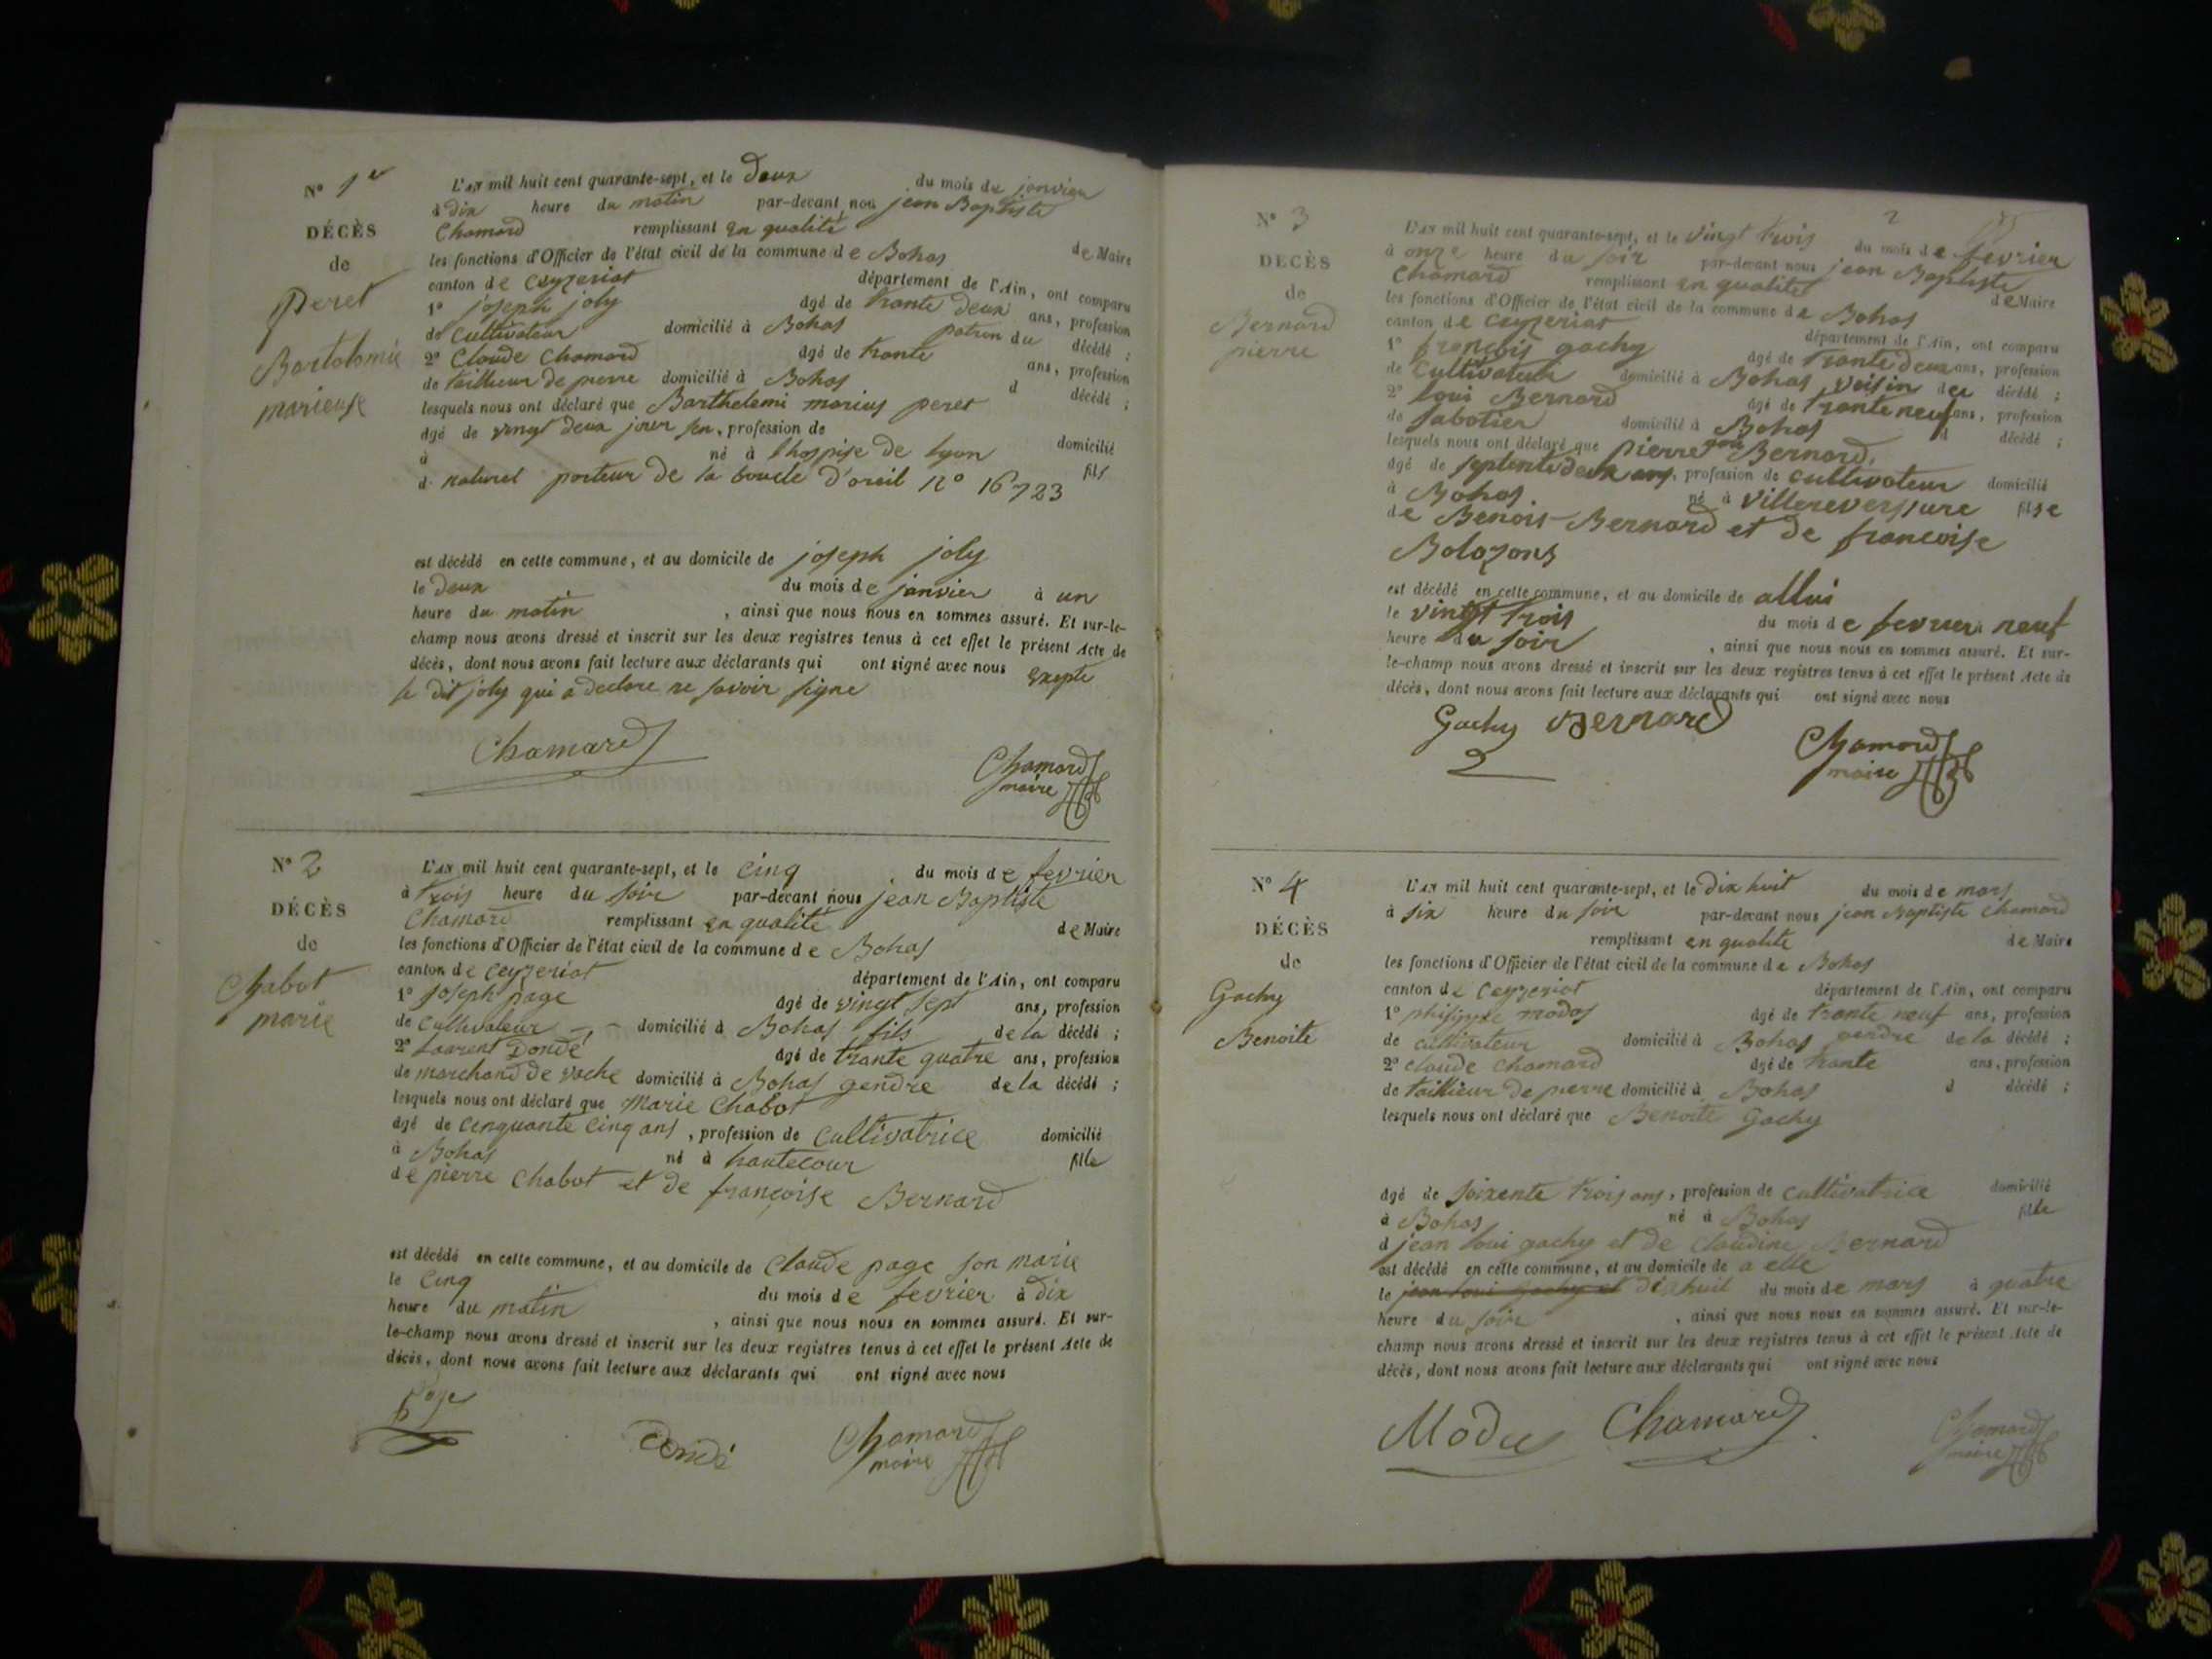 N° 1er
DÉCÈS
de
Peret
Bartolomie
marieuse
L'AN mil huit cent quarante-sept, et le deux du mois de janvier
à dix heure du matin par-devant nou jean Baptiste
Chamard remplissant en qualité de Maire
les fonctions d'Officier de l'état civil de la commune de Bohas
canton de Ceyzeriat département de l'Ain, ont comparu
1° joseph joly âgé de trante deux ans, profession
de cultivateur domicilié à Bohas patron du décédé ;
2° Claude Chamard âgé de trante ans, profession
de taillieur de pierre domicilié à Bohas d décédé ;
lesquels nous ont déclaré que Barthelemi marius peret
âgé de vingt deux jour , profession de domicilié
à né à l'hospise de lyon fils
d naturel porteur de la boucle d'oreil n° 16723
est décédé en cette commune, et au domicile de joseph joly
le deux du mois de janvier à un
heure du matin , ainsi que nous nous en sommes assuré. Et sur-le-
champ nous avons dressé et inscrit sur les deux registres tenus à cet effet le présent Acte de
décès, dont nous avons fait lecture aux déclarants qui ont signé avec nous exepte
le dit joly qui a declare ne savoir signe
Chamard
Chamard
maire
N° 2
DÉCÈS
de
Chabot
marie
L'AN mil huit cent quarante-sept, et le cinq du mois de fevrier
à trois heure du soir par-devant nous jean Baptiste
Chamard remplissant en qualité de Maire
les fonctions d'Officier de l'état civil de la commune de Bohas
canton de Ceyzeriat département de l'Ain, ont comparu
1° Joseph page âgé de vingt sept ans, profession
de cultivateur domicilié à Bohas fils de la décédé ;
2° Laurent Dondé âgé de trante quatre ans, profession
de marchand de vache domicilié à Bohas gendre de la décédé ;
lesquels nous ont déclaré que Marie Chabot
âgé de cenquante cinq ans , profession de cultivatrice domicilié
à Bohas né à hautecour fille
de pierre Chabot et de françoise Bernard
est décédé en cette commune, et au domicile de Claude page son marie
le cinq du mois de fevrier à dix
heure du matin , ainsi que nous nous en sommes assuré. Et sur-
le-champ nous avons dressé et inscrit sur les deux registres tenus à cet effet le présent Acte de
décès, dont nous avons fait lecture aux déclarants qui ont signé avec nous
Page
Dondé
Chamard
maire
2
N° 3
DÉCÈS
de
Bernard
pierre
L'AN mil huit cent quarante-sept, et le vingt trois du mois de fevrier
à onze heure du soir par-devant nous jean Baptiste
Chamard remplissant en qualité de Maire
les fonctions d'Officier de l'état civil de la commune de Bohas
canton de Ceyzeriat département de l'Ain, ont comparu
1° françois gachy âgé de trante deux ans, profession
de cultivateur domicilié à Bohas voisin du décédé ;
2° loui Bernard âgé de trante neuf ans, profession
de sabotier domicilié à Bohas d décédé ;
lesquels nous ont déclaré que pierre Bernard,
âgé de septente deux ans, profession de cultivateur domicilié
à Bohas. né à villereversure fils
de Benois Bernard et de francoise
Bolozons
est décédé en cette commune, et au domicile de allui
le vingt trois du mois de fevrier à neuf
heure du soir , ainsi que nous nous en sommes assuré. Et sur-
le-champ nous avons dressé et inscrit sur les deux registres tenus à cet effet le présent Acte de
décès, dont nous avons fait lecture aux déclarants qui ont signé avec nous
Gachy Bernard
Chamard
maire
N° 4
DÉCÈS
de
Gachy
Benoite
L'AN mil huit cent quarante-sept, et le dix huit du mois de mars
à six heure du soir par-devant nous jean Baptiste Chamard
remplissant en qualite de Maire
les fonctions d'Officier de l'état civil de la commune de Bohas
canton de Ceyzeriat département de l'Ain, ont comparu
1° modas âgé de trante neuf ans, profession
de cultivateur domicilié à Bohas gendre de la décédé ;
2° claude Chamard âgé de trante ans, profession
de taillieur de pierre domicilié à Bohas d décédé ;
lesquels nous ont déclaré que Benoite Gachy
âgé de soixente trois ans, profession de cultivatrice domicilié
à Bohas né à Bohas fille
d jean loui gachy et de Claudine Bernard
est décédé en cette commune, et au domicile de a elle
le jean loui gachy et dix huit du mois de mars à quatre
heure du soir , ainsi que nous nous en sommes assuré. Et sur-le-
champ nous avons dressé et inscrit sur les deux registres tenus à cet effet le présent Acte de
décès, dont nous avons fait lecture aux déclarants qui ont signé avec nous
Modas Chamard
Chamard
maire